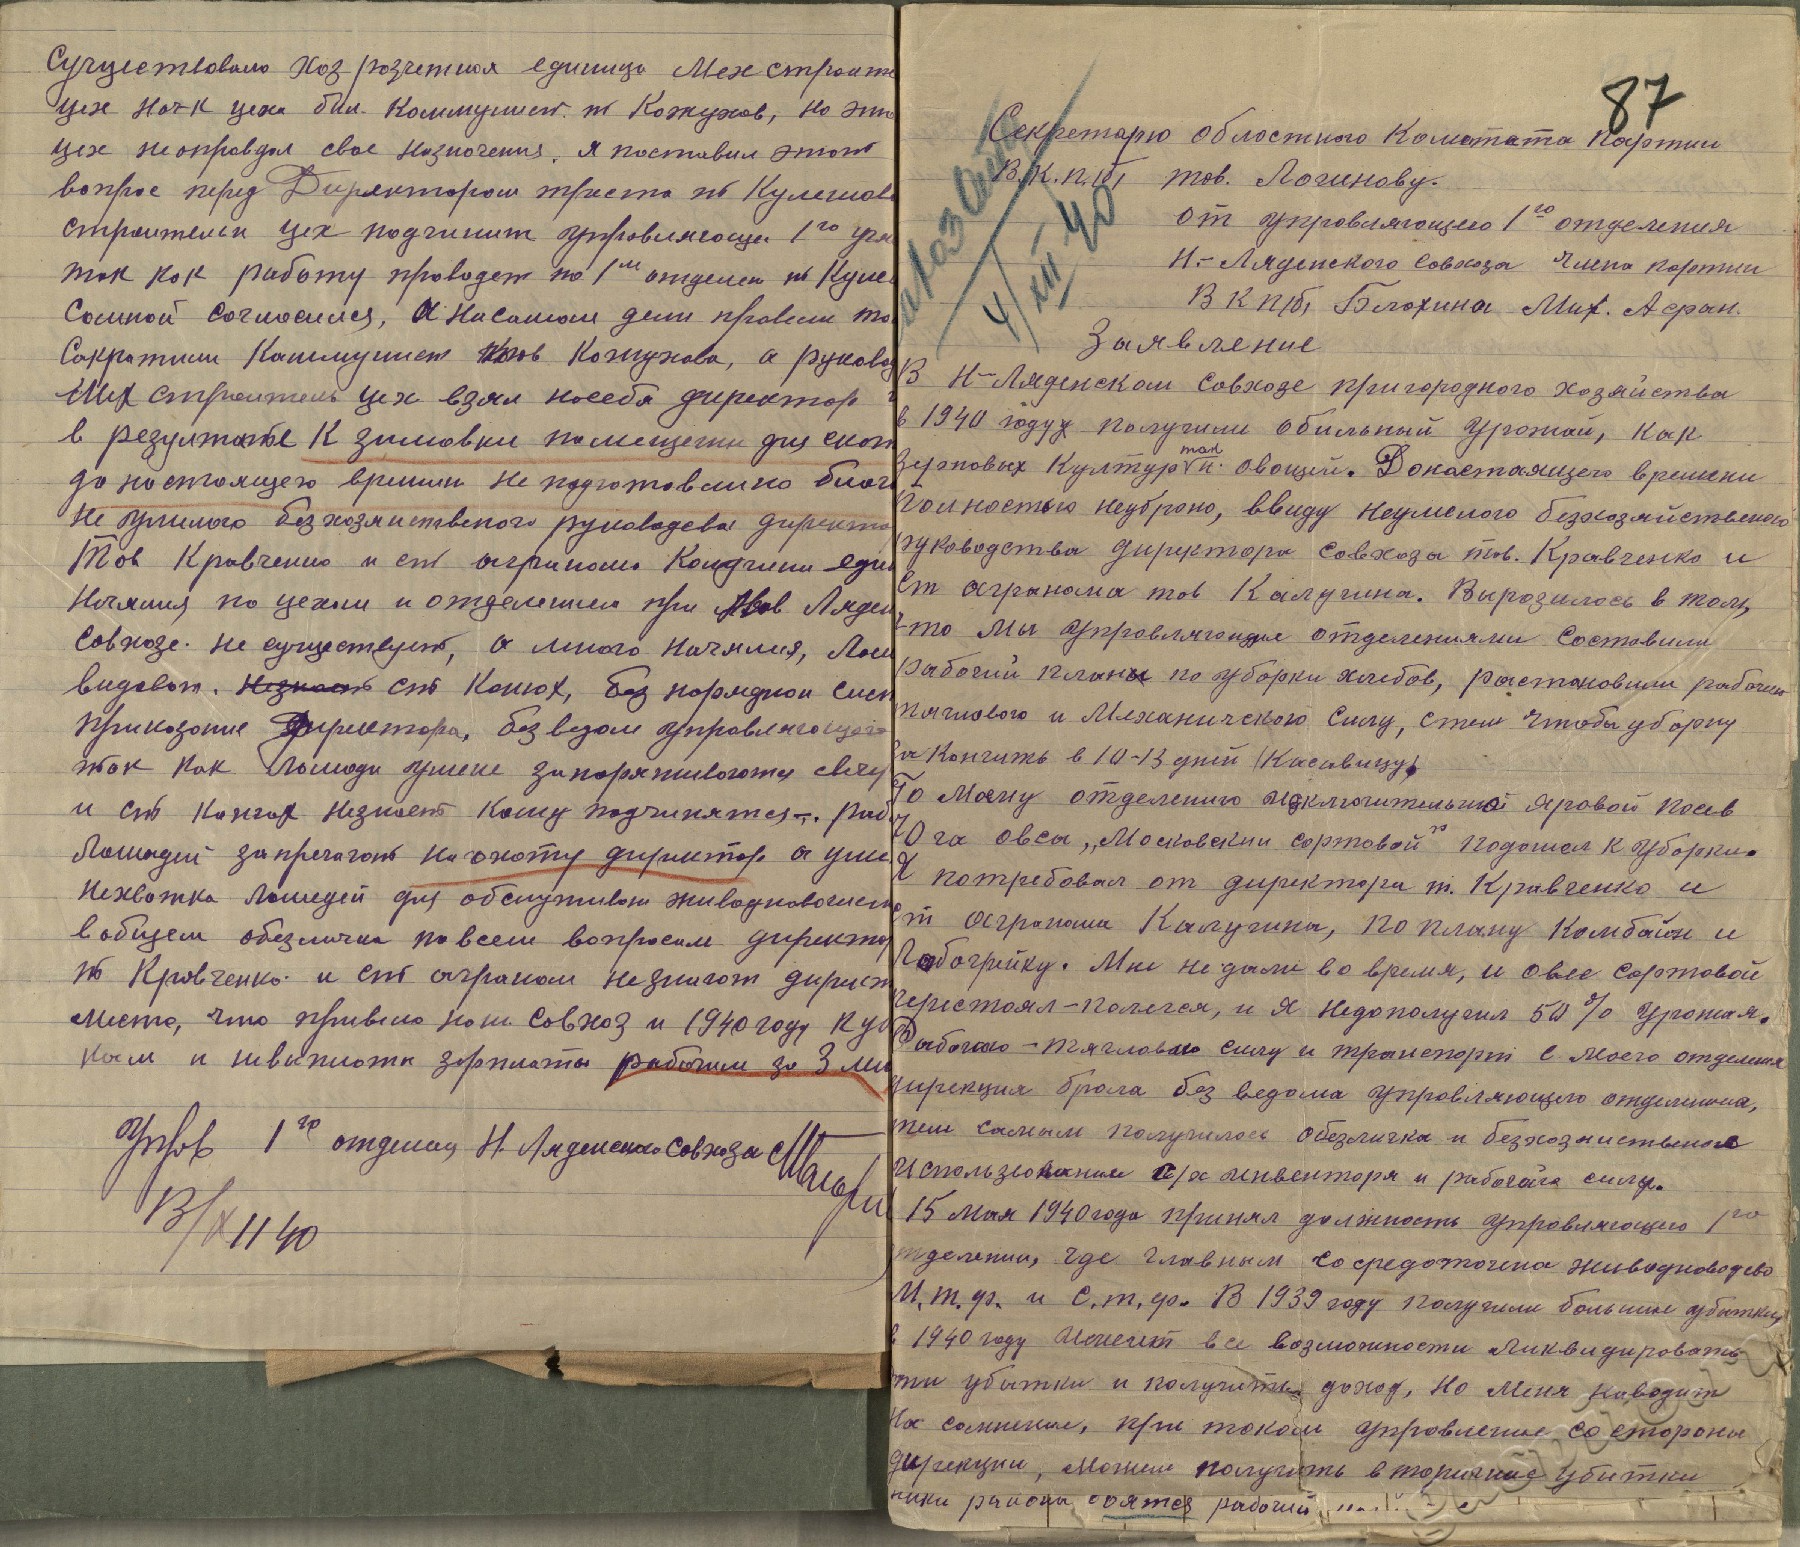 Существовало Хоз розчетная единица Мех строите
цех Нач-к цеха был. Коммунист. т Кожухов, но это
цех неоправдал свое Назночения. я поставил этот
вопрос перед Директором треста т Кулешов
строительн цех подчинит управляющ 1го
ток кок работу проводет по 1м отделен т Куле
Сомной Согласился, а Насамом деле провели
Сокротили Коммунист тов Кожухова, а руково
Мех строитель цех взял насебя директор
в результате К зимовки помещении для скот
до ностоящего времени Не подготовлино
не умилого безхозяиственого руководева директо
Тов Кравченко и ст агранома Калугина един
Ночялия, по цехам и отделением при Ляден
Совхозе. не существует, а много Начялия,
видовот. ст Конюх, без норядной
приказание Директора, без ведом управляющего
ток как Лошоди уже запорягивоютя
и ст Конюх Незноет Кому подчинятся-. раб
Лошодей запрегают на охоту директор а
Нехвотка Лошодей для обслуживон живодноводчест
вобщем обезличка повсем вопросам директор
т Кровченко. и ст аграном незнают
место, что привело наш совхоз и 1940 году К
ком и невиплоти зорплоты рабочим за 3
Управ 1го отделен Н. Ляденского Совхоза
87
Секретарю облостного Комитата партии
В.К.П.(б) тов. Логинову.
от упровляющего 1го отделения
Н.-Ляденского совхоза Члена партии
В К П(б) Блохина Мих. Афан.
4/XII 40
Заявление
В Н-Ляденском совхозе пригородного хозяйства
в 1940 году получили обильный Урожай, как
зерновых Культур так и. овощей. Донастаящего времени
полностью неуброно, ввиду Неумелого безхозяйственого
руководства директора совхоза тов. Кравченко и
ст агранома тов Калугина. Вырозилось в том,
что мы упровляющие отделениями состовили
рабочий планы по уборки хлебов, растоновили рабочею
тяглового и Механичскою силу, стем чтобы уборку
законгить в 10-13 дней (Касавицу)
По Моему отделению исключительной яровой посев
70 га овса, „Московскии сортовой" подошол к уборки.
Я потребовал от директора т. Кравченко и
ст агранома Калугина, по плану Комбайн и
Лобогрейку. Мне не дали во время, и овес сортовой
перестоял-полегся, и я недополучил 50% урожая.
Рабочаю-тягловаю силу и транспорт с моего отделения
дирекция брала без ведома упровляющего отделением,
тем самым получилось обезличка и безхозяиственое
использование с/х инвентаря и рабочая силу.
15 мая 1940 года принял должность упровляющего 1го
отделении, где главным сосредоточена живодноводсво
М.т.ф. и С.т.ф. В 1939 году получили большие убытки,
в 1940 году Имеет все возможности Ликвидировать
эти убытки и получить доход, Но меня наводит
На сомнение, при таком управление со стороны
дирекции, можем получить вторичные убытки